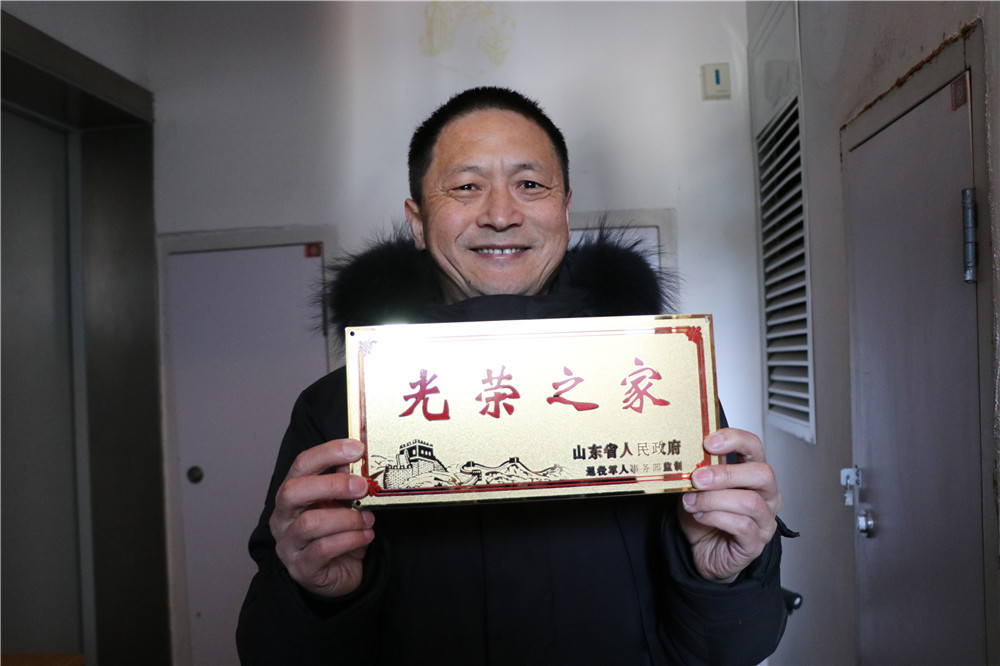 光荣之家
山东省人民政府
退役军人事务部监制